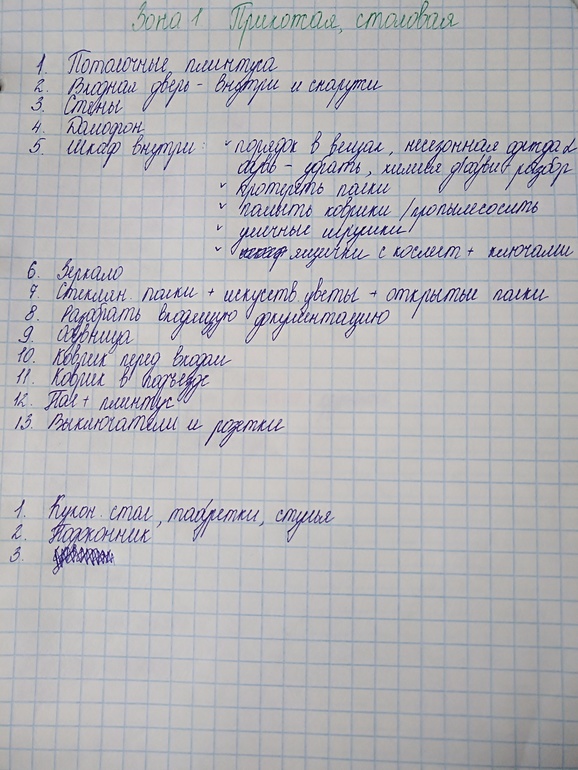 Зона 1 Прихожая, столовая
1. Потолочные плинтуса
2. Входная дверь - внутри и снаружи
3. Стены
4. Домофон
5. Шкаф внутри: ˅ порядок в вещах, несезонная одежда и
обувь - убрать, химия д/обуви разбор
˅ протереть полки
˅ помыть коврики / пропылесосить
˅ уличные игрушки
˅ ящички с космет + ключами
6. Зеркало
7. Стеклян. полки + искусств цветы + открытые полки
8. Разобрать входящую документацию
9. Обувница
10. Коврик перед входом
11. Коврик в подъезде
12. Пол + плинтус
13. Выключатели и розетки
1. Кухон. стол, табуретки, стулья
2. Подоконник
3.